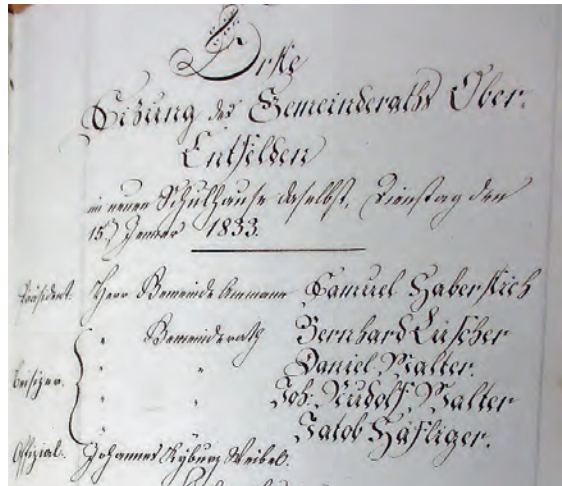 Erste
Sizung des Gemeinderaths Ober-
Entfelden
im neuen Schulhause daselbst, Dienstag den
15. Jenner 1833.
Präsident. Herr Gemeinde Ammann Samuel Haberstich
" Gemeinderath Bernhard Lüscher
" " Daniel Walter.
Beisizer. " " Joh. Rudolf Walter
" " Jakob Häfliger.
Offizial. Johannes Kyburz Weibel.